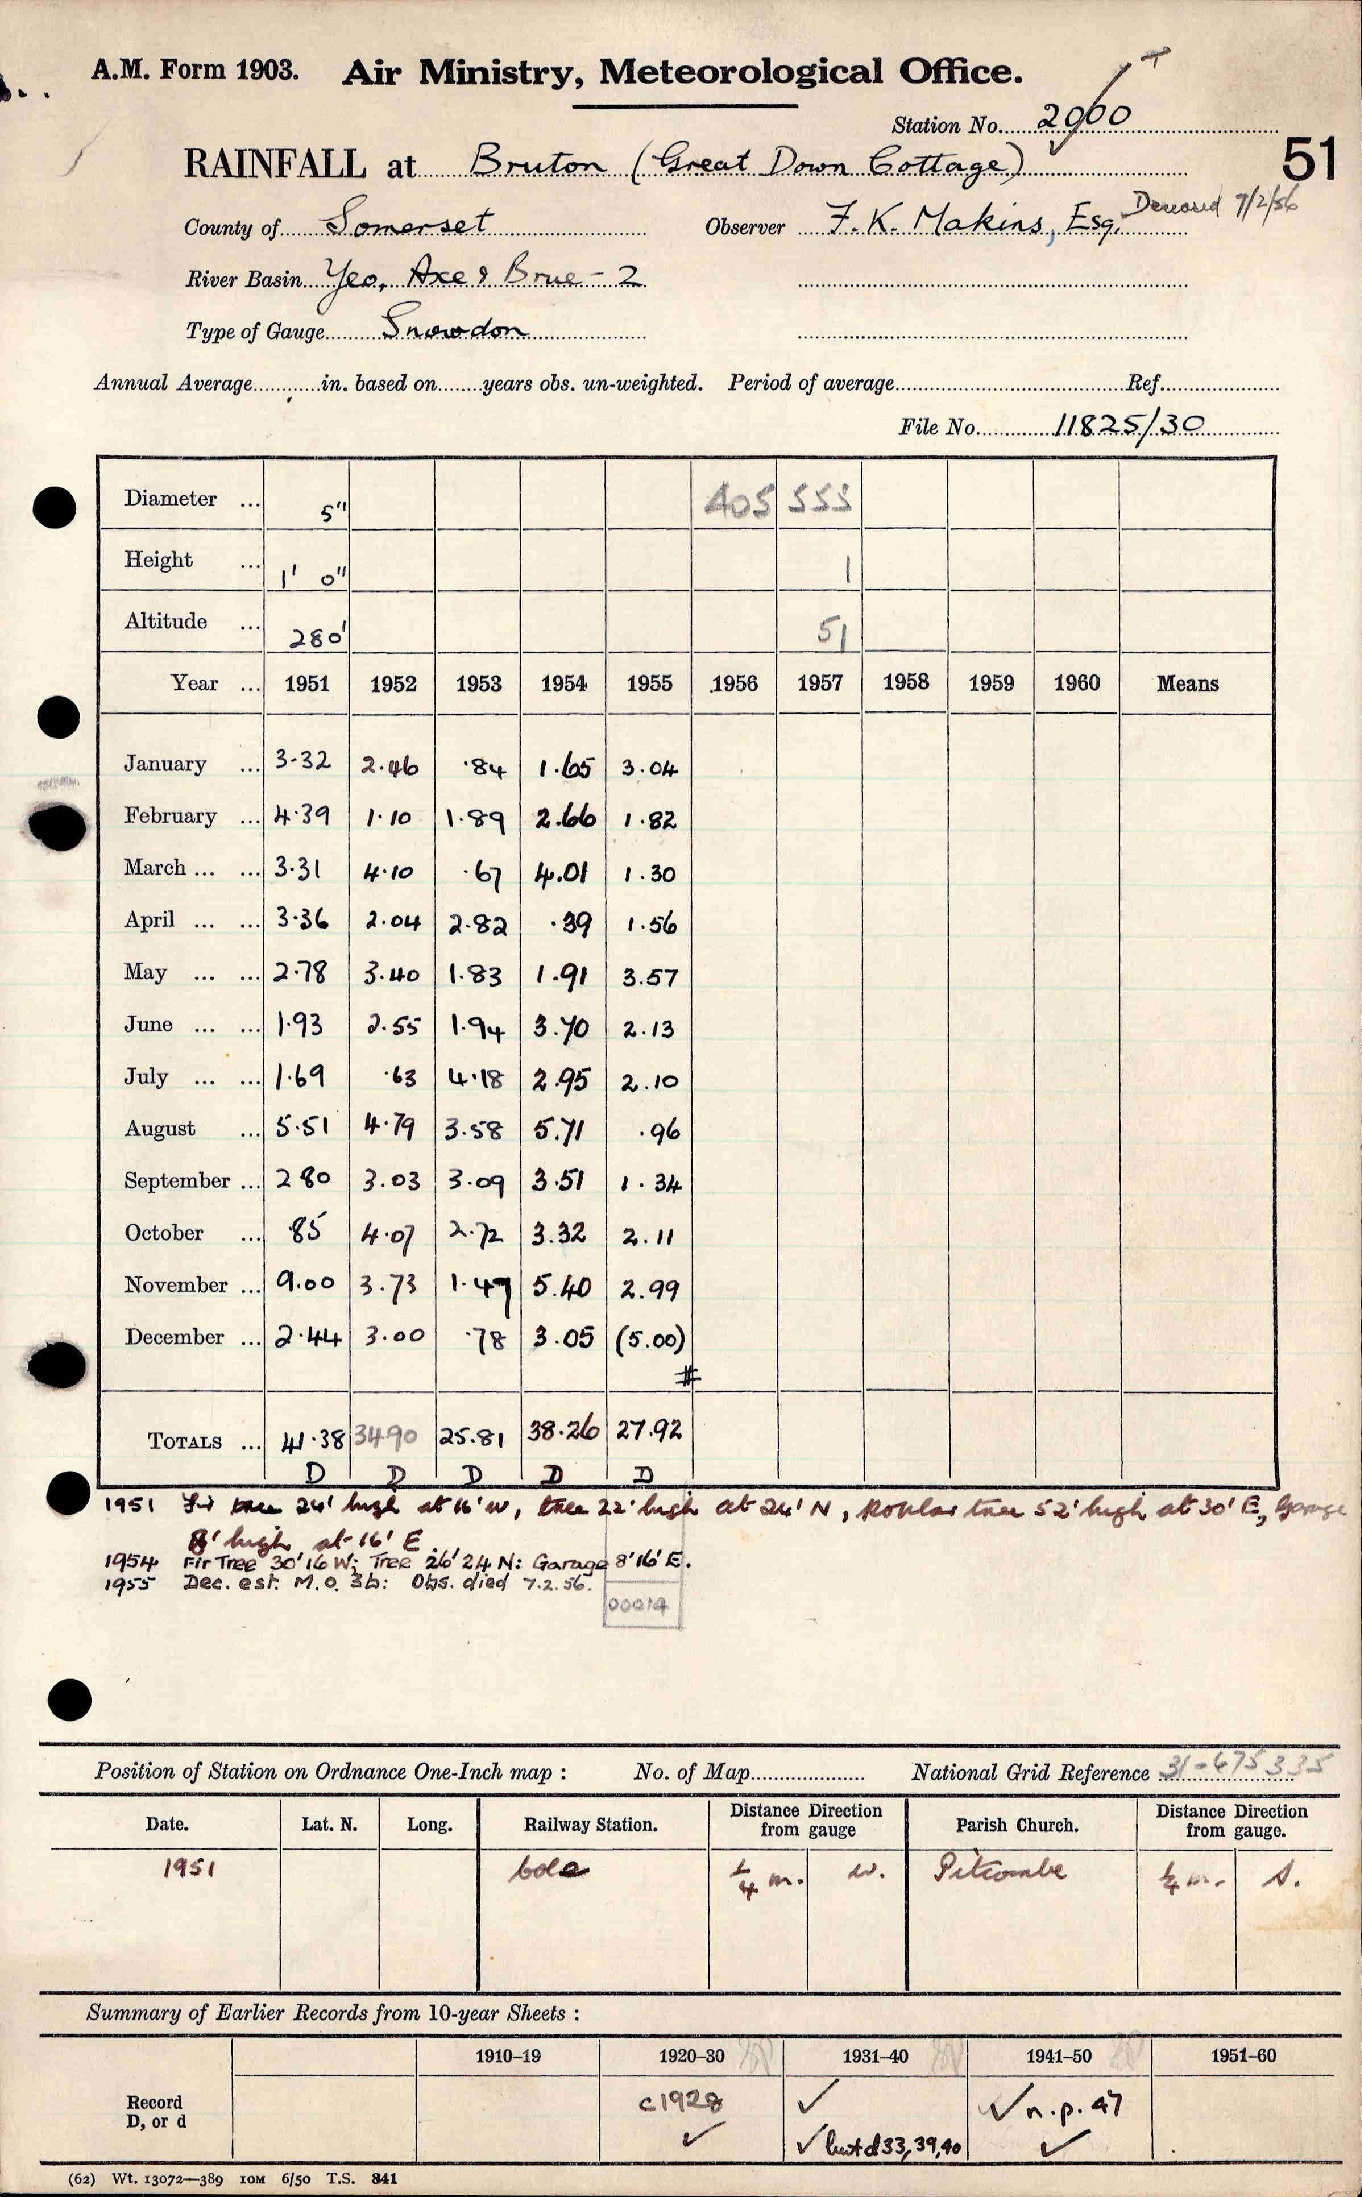 A.M. Form 1903. Air Ministry, Meteorological Office.
Station No. 2000
51
RAINFALL at Bruton (Great Down Cottage)
County of Somerset Observer F. K. Makins, Esq. Deceased 7/2/56
River Basin Yeo, Axe & Brue - 2
Type of Gauge Snowdon
Annual Average in. based on years obs. un-weighted. Period of average Ref.
File No. 11825/30
Diameter ... 5" 405 555
Height ... 1' 0" 1
Altitude ... 280' 51
Year ... 1951 1952 1953 1954 1955 1956 1957 1958 1959 1960 Means
January ... 3.32 2.46 .84 1.65 3.04
February ... 4.39 1.10 1.89 2.66 1.82
March ... ... 3.31 4.10 .67 4.01 1.30
April ... ... 3.36 2.04 2.82 .39 1.56
May ... ... 2.78 3.40 1.83 1.91 3.57
June ... ... 1.93 2.55 1.94 3.70 2.13
July ... ... 1.69 .63 4.18 2.95 2.10
August ... 5.51 4.79 3.58 5.71 .96
September ... 2 80 3.03 3.09 3.51 1.34
October ... .85 4.07 2.72 3.32 2.11
November ... 9.00 3.73 1.47 5.40 2.99
December ... 2.44 3.00 .78 3.05 (5.00)
#
TOTALS ... 41.38 3490 25.81 38.26 27.92
D D D D D
1951 Fir tree 24' high at 16' W, tree 22' high at 24' N, Poplar tree 52' high at 30' E, Garage
8' high at 16' E
1954 Fir Tree 30' 16 W; Tree 26' 24 N: Garage 8' 16' E.
1955 Dec. est. M.O. 3b: Obs. died 7.2.56.
00014
Position of Station on Ordnance One-Inch map : No. of Map National Grid Reference 31-675335
Date. Lat. N. Long. Railway Station. Distance Direction from gauge Parish Church. Distance Direction from gauge.
1951 Cole ¼ m. W. Pitcombe ¼ m. S.
Summary of Earlier Records from 10-year Sheets :
1910-19 1920-30 1931-40 1941-50 1951-60
Record c1928 ✓ ✓ n.p. 47
D, or d ✓ ✓ but d 33, 39, 40 ✓
(62) Wt. 13072—389 10M 6/50 T.S. 841